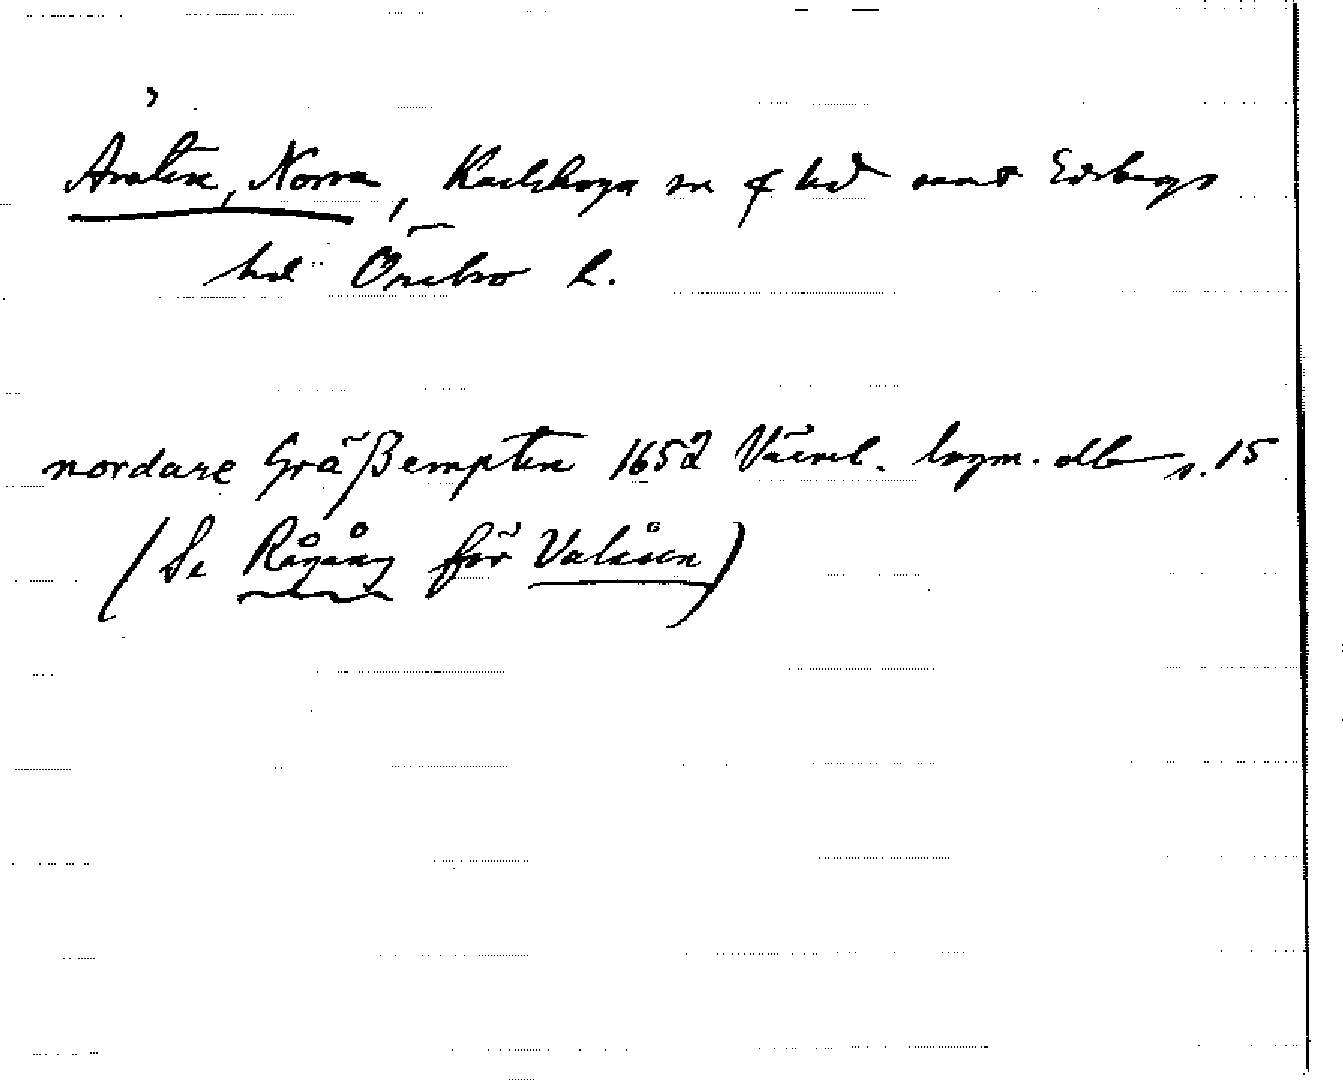 Ämten, Norra, Karlskoga sn o hd samt Edsbergs
hd Örebro l.
nordare Gräßempten 1652 Värml. lagm. dlb s. 15
(Se Rågång för Valåsen)